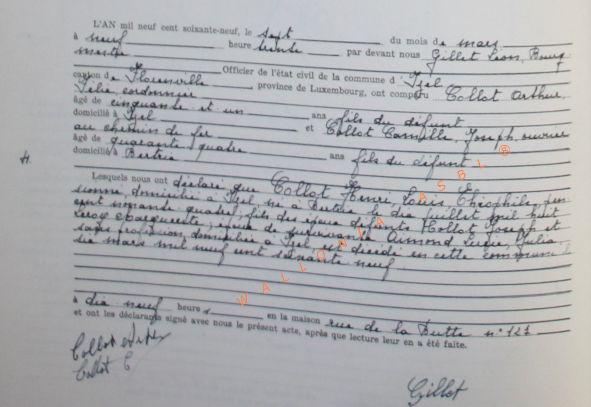 L'AN mil neuf cent soixante-neuf, le sept du mois de mars
à neuf heure trente par devant nous Gillet Léon, Bourg
mestre Officier de l'état civil de la commune d' Izel
canton de Florenville, province de Luxembourg, ont comparu Collot Arthur,
cordonnier
âgé de cinquante et un ans fils du défunt
domicilié à Izel et Collot Camille, Joseph, ouvrier
au chemin de fer
âgé de quarante quatre ans fils du défunt
domicilié à Bertrix
Lesquels nous ont déclaré que Collot Henri, Louis, Théophile, pen
sionné, domicilié à Izel, né à le dix juillet mil huit
cent nonante quatre, fils des époux défunts Collot Joseph et
époux de survivante Aimond Julia
sans profession, domiciliée à Izel est décédé en cette commune le
six mars mil neuf cent soixante neuf
à dix neuf heures en la maison rue de la Butte n° 127
et ont les déclarants signé avec nous le présent acte, après que lecture leur en a été faite.
Collot
Collot C
Gillet
WALLONIA ASBL ®